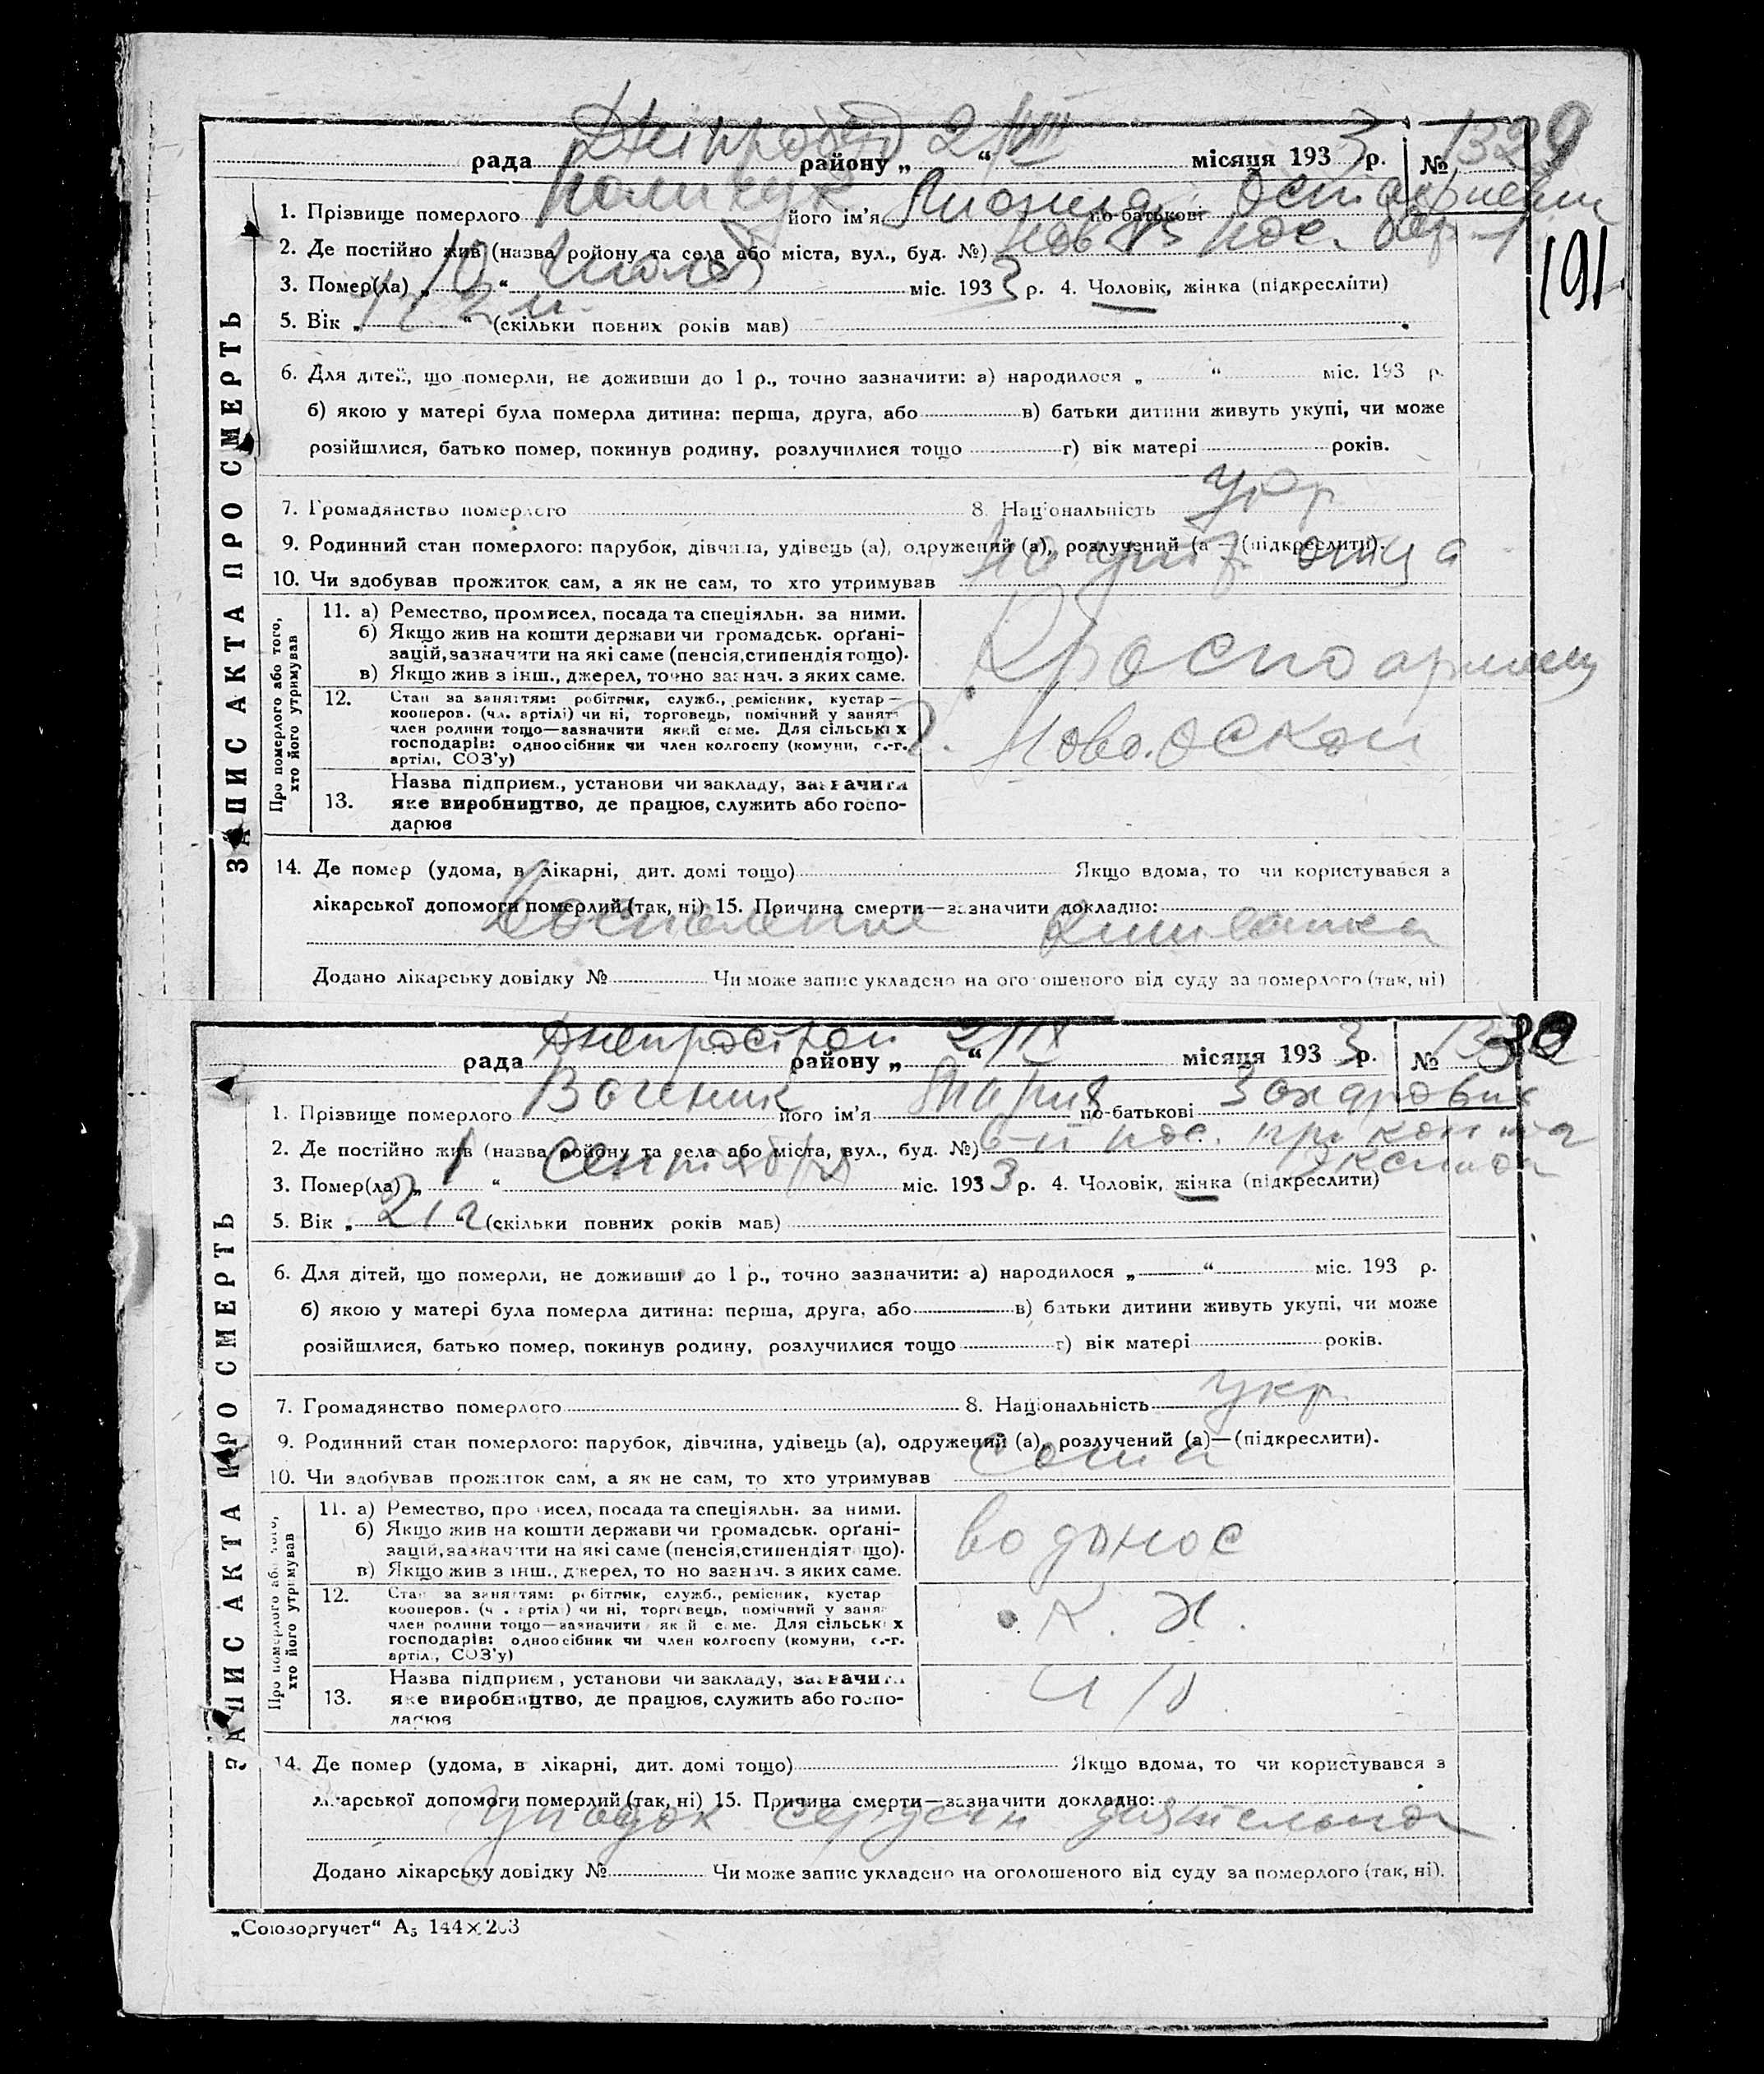 Дніпробуд 2/VIII 3 1329
рада району „ “ місяця 193 р. №
1. Прізвище померлого його ім'я по-батькові
191
2. Де постійно жив (назва ройону та села або міста, вул., буд. №)
3. Помер(ла) „ 10 “ міс. 1933 р. 4. Чоловік, жінка (підкреслити)
5. Вік „ “ (скільки повних років мав)
6. Для дітей, що померли, не доживши до 1 р., точно зазначити: а) народилося „ “ міс. 193 р.
б) якою у матері була померла дитина: перша, друга, або в) батьки дитини живуть укупі, чи може
розійшлися, батько помер, покинув родину, розлучилися тощо г) вік матері років.
7. Громадянство померлого 8. Національність укр
9. Родинний стан померлого: парубок, дівчина, удівець (а), одружений (а), розлучений (а — (підкреслити).
10. Чи здобував прожиток сам, а як не сам, то хто утримував отца
ЗАПИС АКТА ПРО СМЕРТЬ
Про померлого або того, хто його утримував
11. а) Ремество, промисел, посада та спеціяльн. за ними.
б) Якщо жив на кошти держави чи громадськ. орґані-
зацій, зазначити на які саме (пенсія, стипендія тощо).
в) Якщо жив з інш., джерел, точно зазнач. з яких саме.
12. Стан за заняттям: робітник, служб., ремісник, кустар —
кооперов. (чл. артілі) чи ні, торговець, помічний у занят
член родини тощо—зазначити який саме. Для сільських
господарів: одноосібник чи член колгоспу (комуни, с.-г.
артілі, СОЗ'у)
13. Назва підприєм., установи чи закладу, зазначити
яке виробництво, де працює, служить або госпо-
дарює
14. Де помер (удома, в лікарні, дит. домі тощо) Якщо вдома, то чи користувався з
лікарської допомоги померлий (так, ні) 15. Причина смерти—зазначити докладно:
Воспаление
Додано лікарську довідку № Чи може запис укладено на оголошеного від суду за померлого (так, ні)
Днепрострой 2/IX 3 1330
рада району „ “ місяця 193 р. №
1. Прізвище померлого його ім'я Мария по-батькові Захарович
2. Де постійно жив (назва ройону та села або міста, вул., буд. №) 6-й пос.
3. Помер(ла) „ 1 “ Сентября міс. 1933 р. 4. Чоловік, жінка (підкреслити)
5. Вік „ 21 г “ (скільки повних років мав)
6. Для дітей, що померли, не доживши до 1 р., точно зазначити: а) народилося „ “ міс. 193 р.
б) якою у матері була померла дитина: перша, друга, або в) батьки дитини живуть укупі, чи може
розійшлися, батько помер, покинув родину, розлучилися тощо г) вік матері років.
7. Громадянство померлого 8. Національність укр.
9. Родинний стан померлого: парубок, дівчина, удівець (а), одружений (а), розлучений (а)—(підкреслити).
10. Чи здобував прожиток сам, а як не сам, то хто утримував Сама
ЗАПИС АКТА ПРО СМЕРТЬ
Про померлого або того, хто його утримував
11. а) Ремество, промисел, посада та спеціяльн. за ними.
б) Якщо жив на кошти держави чи громадськ. орґані-
зацій, зазначити на які саме (пенсія, стипендія тощо).
в) Якщо жив з інш., джерел, точно зазнач. з яких саме.
водонос
12. Стан за заняттям: робітник, служб., ремісник, кустар
кооперов. (чл. артілі) чи ні, торговець, помічний у занят
член родини тощо—зазначити який саме. Для сільських
господарів: одноосібник чи член колгоспу (комуни, с.-г.
артілі, СОЗ'у)
К. Х.
13. Назва підприєм., установи чи закладу, зазначити
яке виробництво, де працює, служить або госпо-
дарює
14. Де помер (удома, в лікарні, дит. домі тощо) Якщо вдома, то чи користувався з
лікарської допомоги померлий (так, ні) 15. Причина смерти—зазначити докладно:
упадок сердечн деятельнос
Додано лікарську довідку № Чи може запис укладено на оголошеного від суду за померлого (так, ні).
„Союзоргучет“ А5 144×203